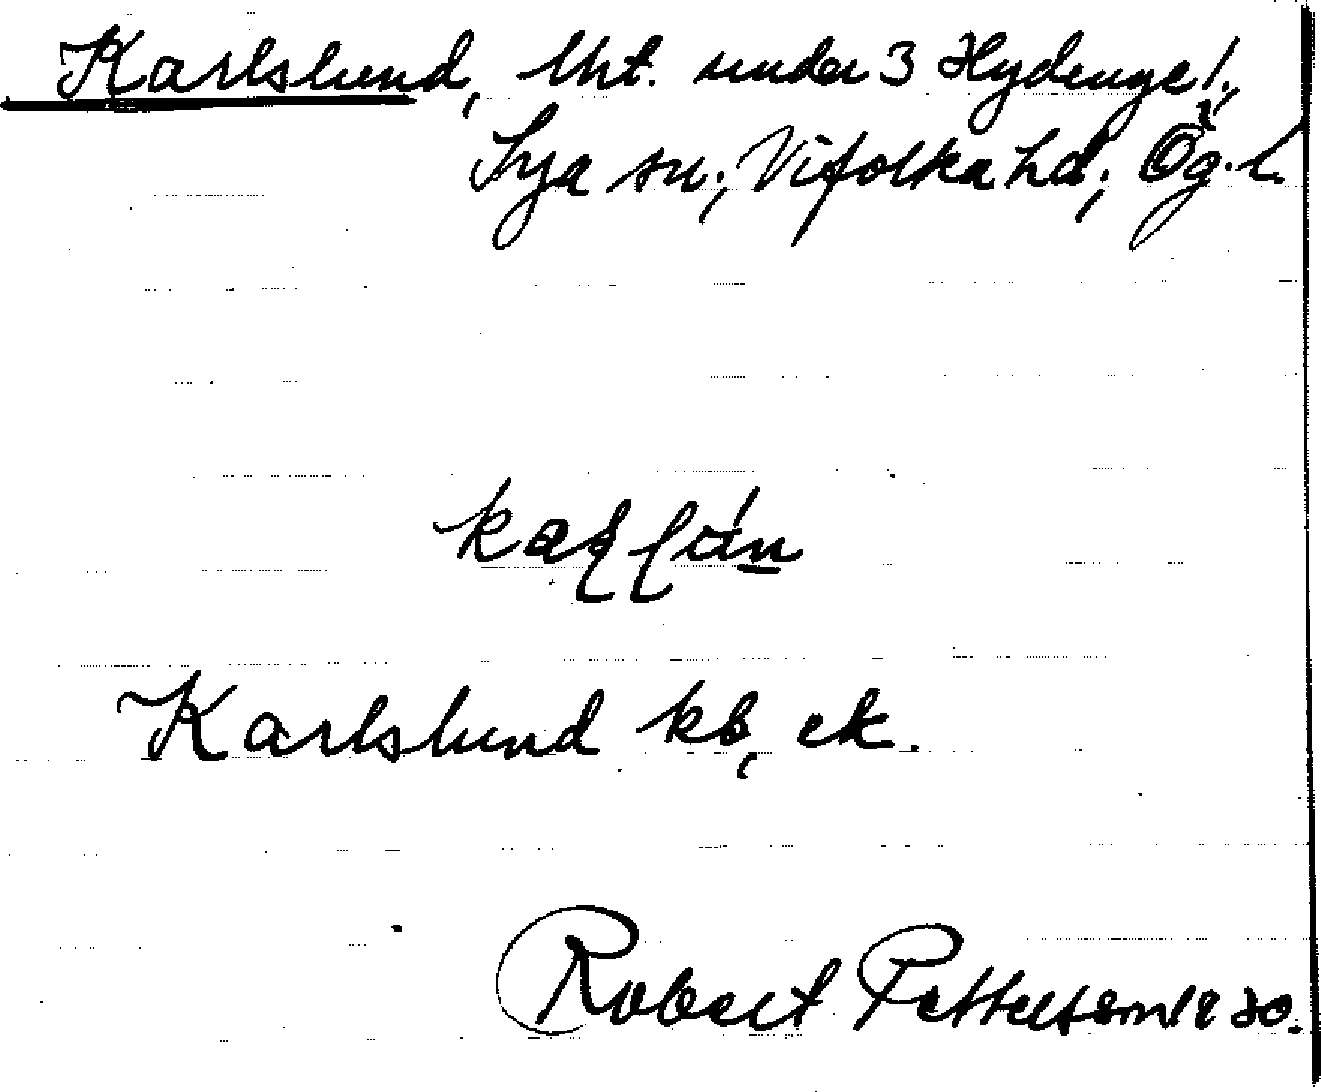 Karlslund, lht. under 3 Hydinge!,
Sya sn; Vifolka hd; Ög. l.
Karlslund kb, ek.
Robert Pettersson 1930.